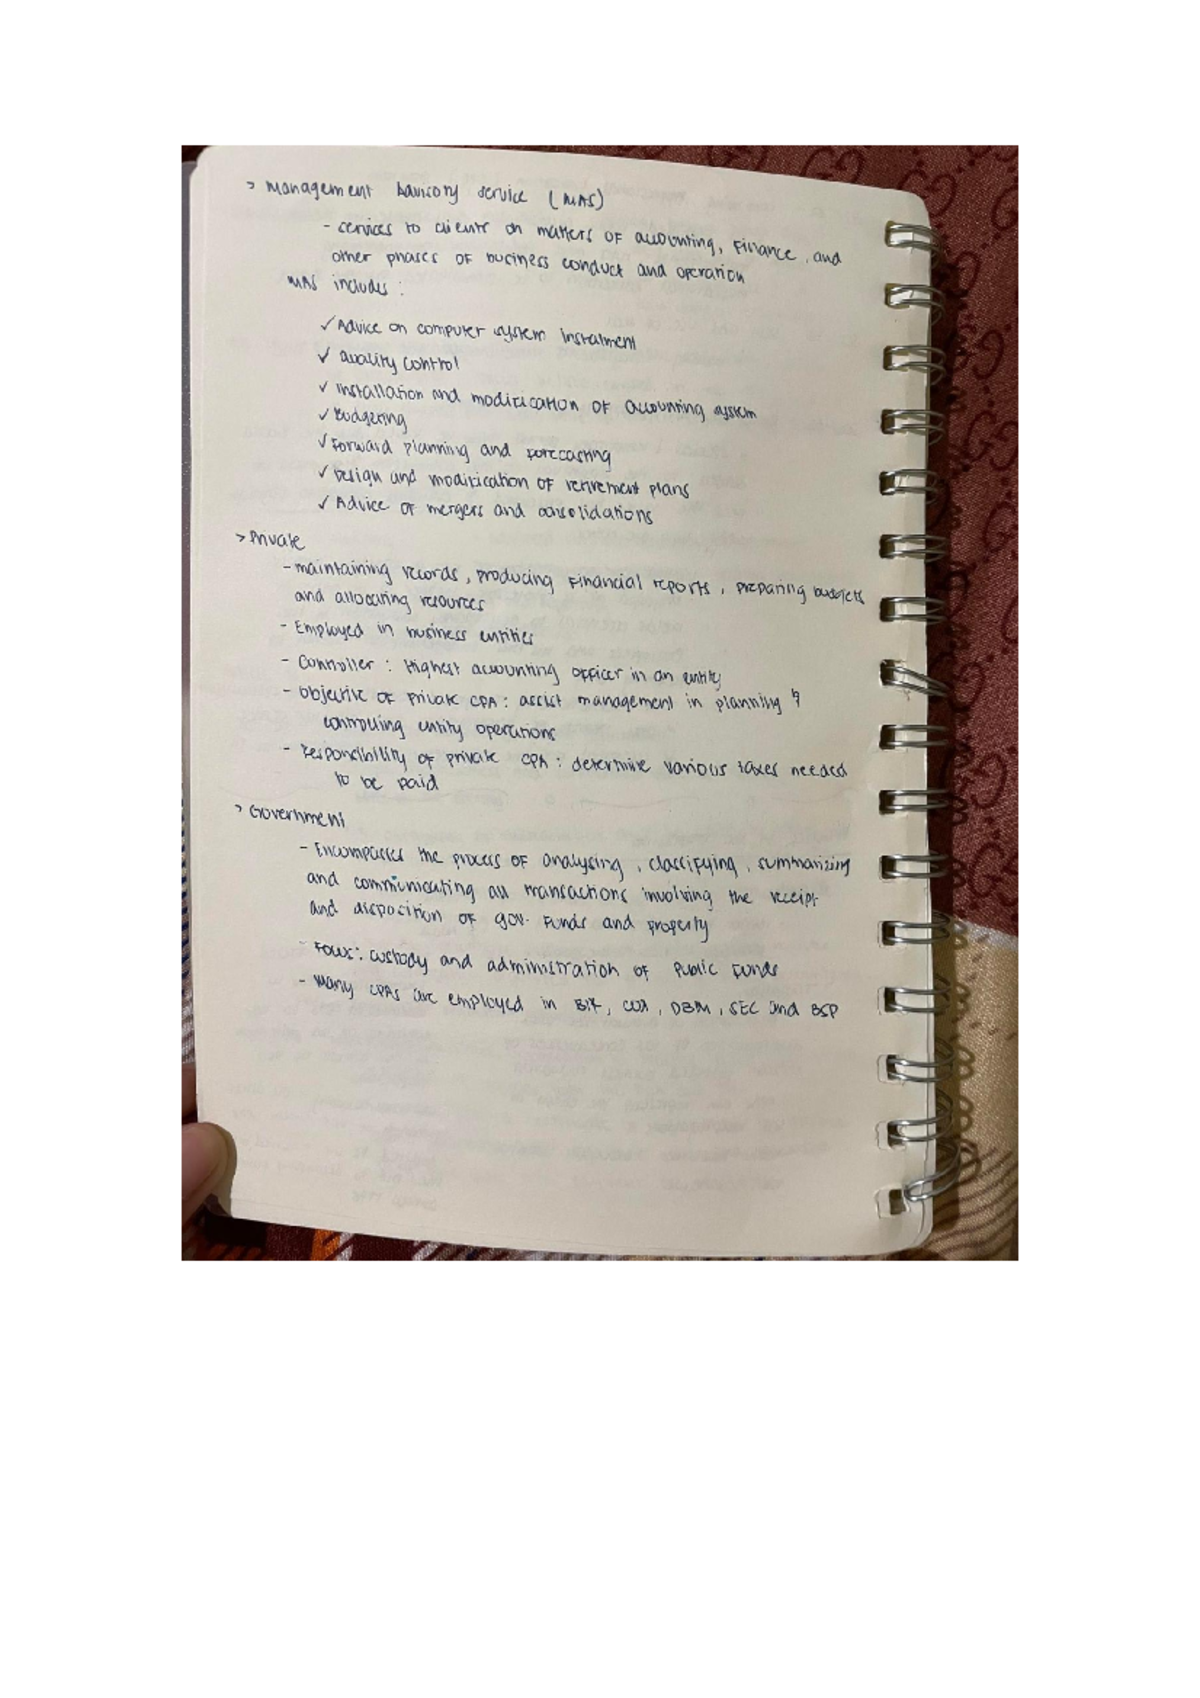 > Management Advisory Service (MAS)
- services to clients on matters of accounting, Finance, and
other phases of business conduct and operation
MAS includes :
✓ Advice on computer system instalment
✓ Quality control
✓ Installation and modification of accounting system
✓ Budgeting
✓ Forward planning and forecasting
✓ Design and modification of retirement plans
✓ Advice of mergers and consolidations
> Private
- maintaining records, producing Financial reports, preparing budgets
and allocating resources
- Employed in business entities
- Controller : Highest accounting officer in an entity
- Objective of private CPA : assist management in planning &
controlling entity operations
- Responsibility of private CPA : determine various taxes needed
to be paid
> Government
- Encompasses the process of analysing, classifying, summarizing
and communicating all transactions involving the receipt
and disposition of gov. Funds and property
- Focus: custody and administration of Public Funds
- Many CPAs are employed in BIR, COA, DBM, SEC and BSP